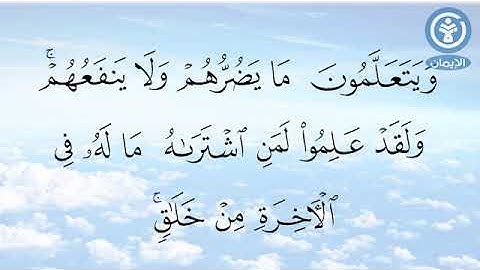 الإيمان
وَيَتَعَلَّمُونَ مَا يَضُرُّهُمْ وَلَا يَنفَعُهُمْ ۚ
وَلَقَدْ عَلِمُوا۟ لَمَنِ ٱشْتَرَىٰهُ مَا لَهُۥ فِى
ٱلْـَٔاخِرَةِ مِنْ خَلَـٰقٍ ۚ